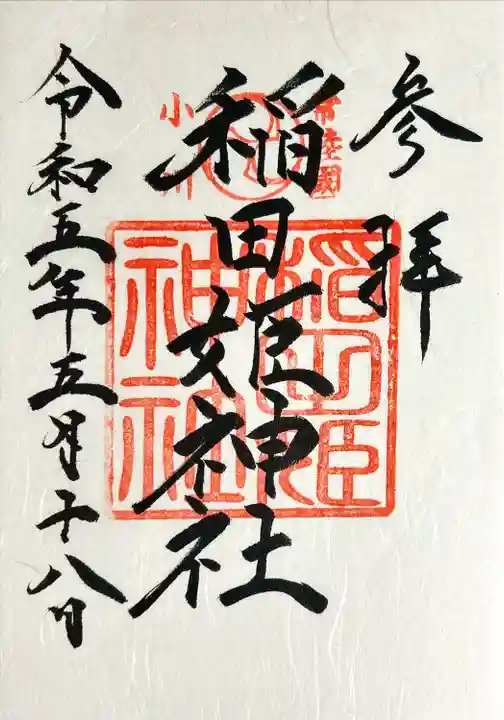 参拝
常陸國
稲田姫神社
小川
稲田姫
神社
令和五年五月十八日